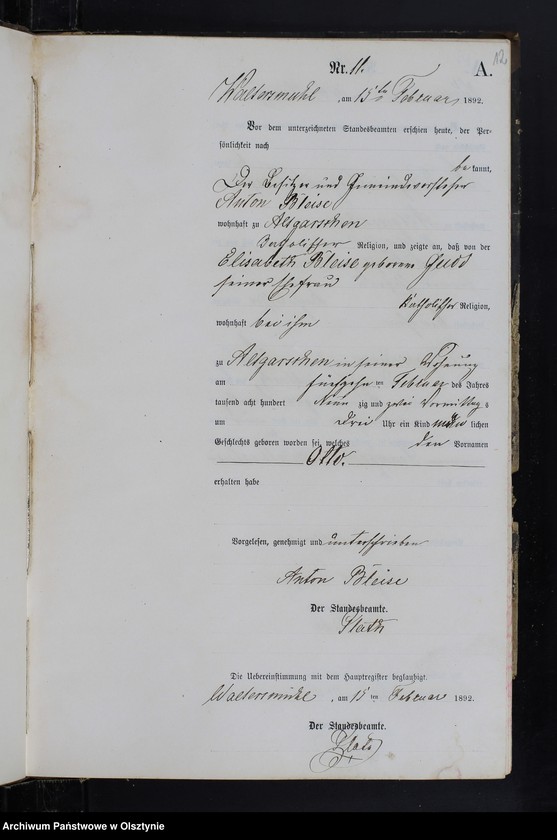 12
Nr. 11. A.
Waltersmühl, am 15ten Februar 1892.
Vor dem unterzeichneten Standesbeamten erschien heute, der Per-
sönlichkeit nach
bekannt,
Der Besitzer und Gemeindevorsteher
Anton Bleise
wohnhaft zu Altgarschen
katholischer Religion, und zeigte an, daß von der
Elisabeth Bleise geborene
seiner Ehefrau
katholischer Religion,
wohnhaft bei ihm
zu Altgarschen in seiner Wohnung
am fünfzehn ten Februar des Jahres
tausend acht hundert Neun zig und zwei Vormittag s
um Drei Uhr ein Kind männlichen
Geschlechts geboren worden sei, welches den Vornamen
Otto.
erhalten habe
Vorgelesen, genehmigt und unterschrieben
Anton Bleise
Der Standesbeamte.
Die Uebereinstimmung mit dem Hauptregister beglaubigt.
Waltersmühl, am 15 ten Februar 1892.
Der Standesbeamte.
Archiwum Państwowe w Olsztynie